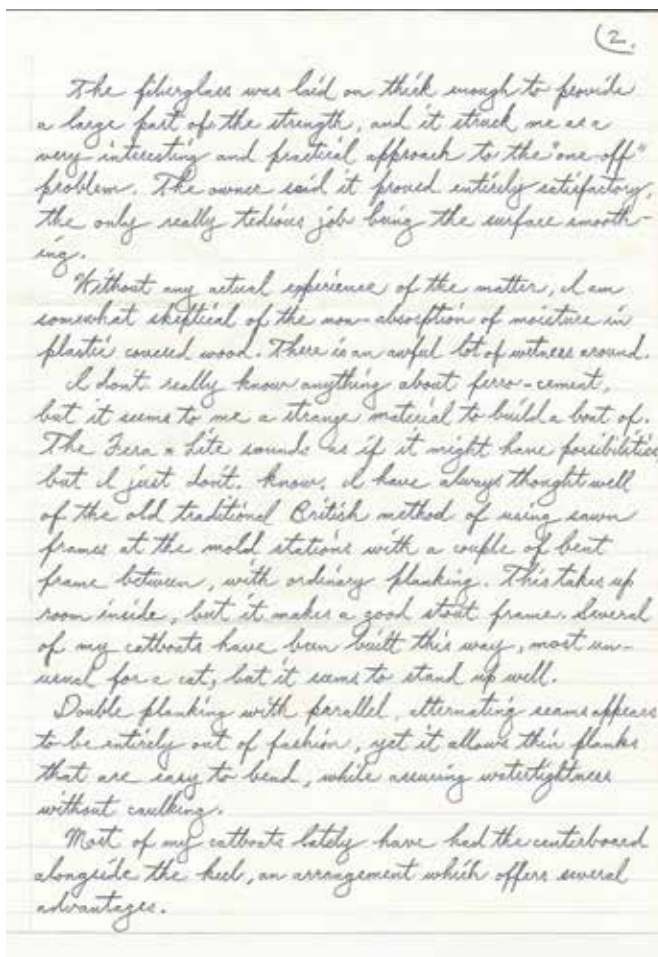 (2.
The fiberglass was laid on thick enough to provide
a large part of the strength, and it struck me as a
very interesting and practical approach to the "one-off"
problem. The owner said it proved entirely satisfactory,
the only really tedious job being the surface smooth-
ing.
Without any actual experience of the matter, I am
somewhat skeptical of the non-absorption of moisture in
plastic covered wood. There is an awful lot of wetness around.
I don't really know anything about ferro-cement,
but it seems to me a strange material to build a boat of.
The Fera-Lite sounds as if it might have possibilities,
but I just don't know. I have always thought well
of the old traditional British method of using sawn
frames at the mold stations with a couple of bent
frame between, with ordinary planking. This takes up
room inside, but it makes a good stout frame. Several
of my catboats have been built this way, most un-
usual for a cat, but it seems to stand up well.
Double planking with parallel, alternating seams appears
to be entirely out of fashion, yet it allows thin planks
that are easy to bend, while assuring watertightness
without caulking.
Most of my catboats lately have had the centerboard
alongside the keel, an arrangement which offers several
advantages.